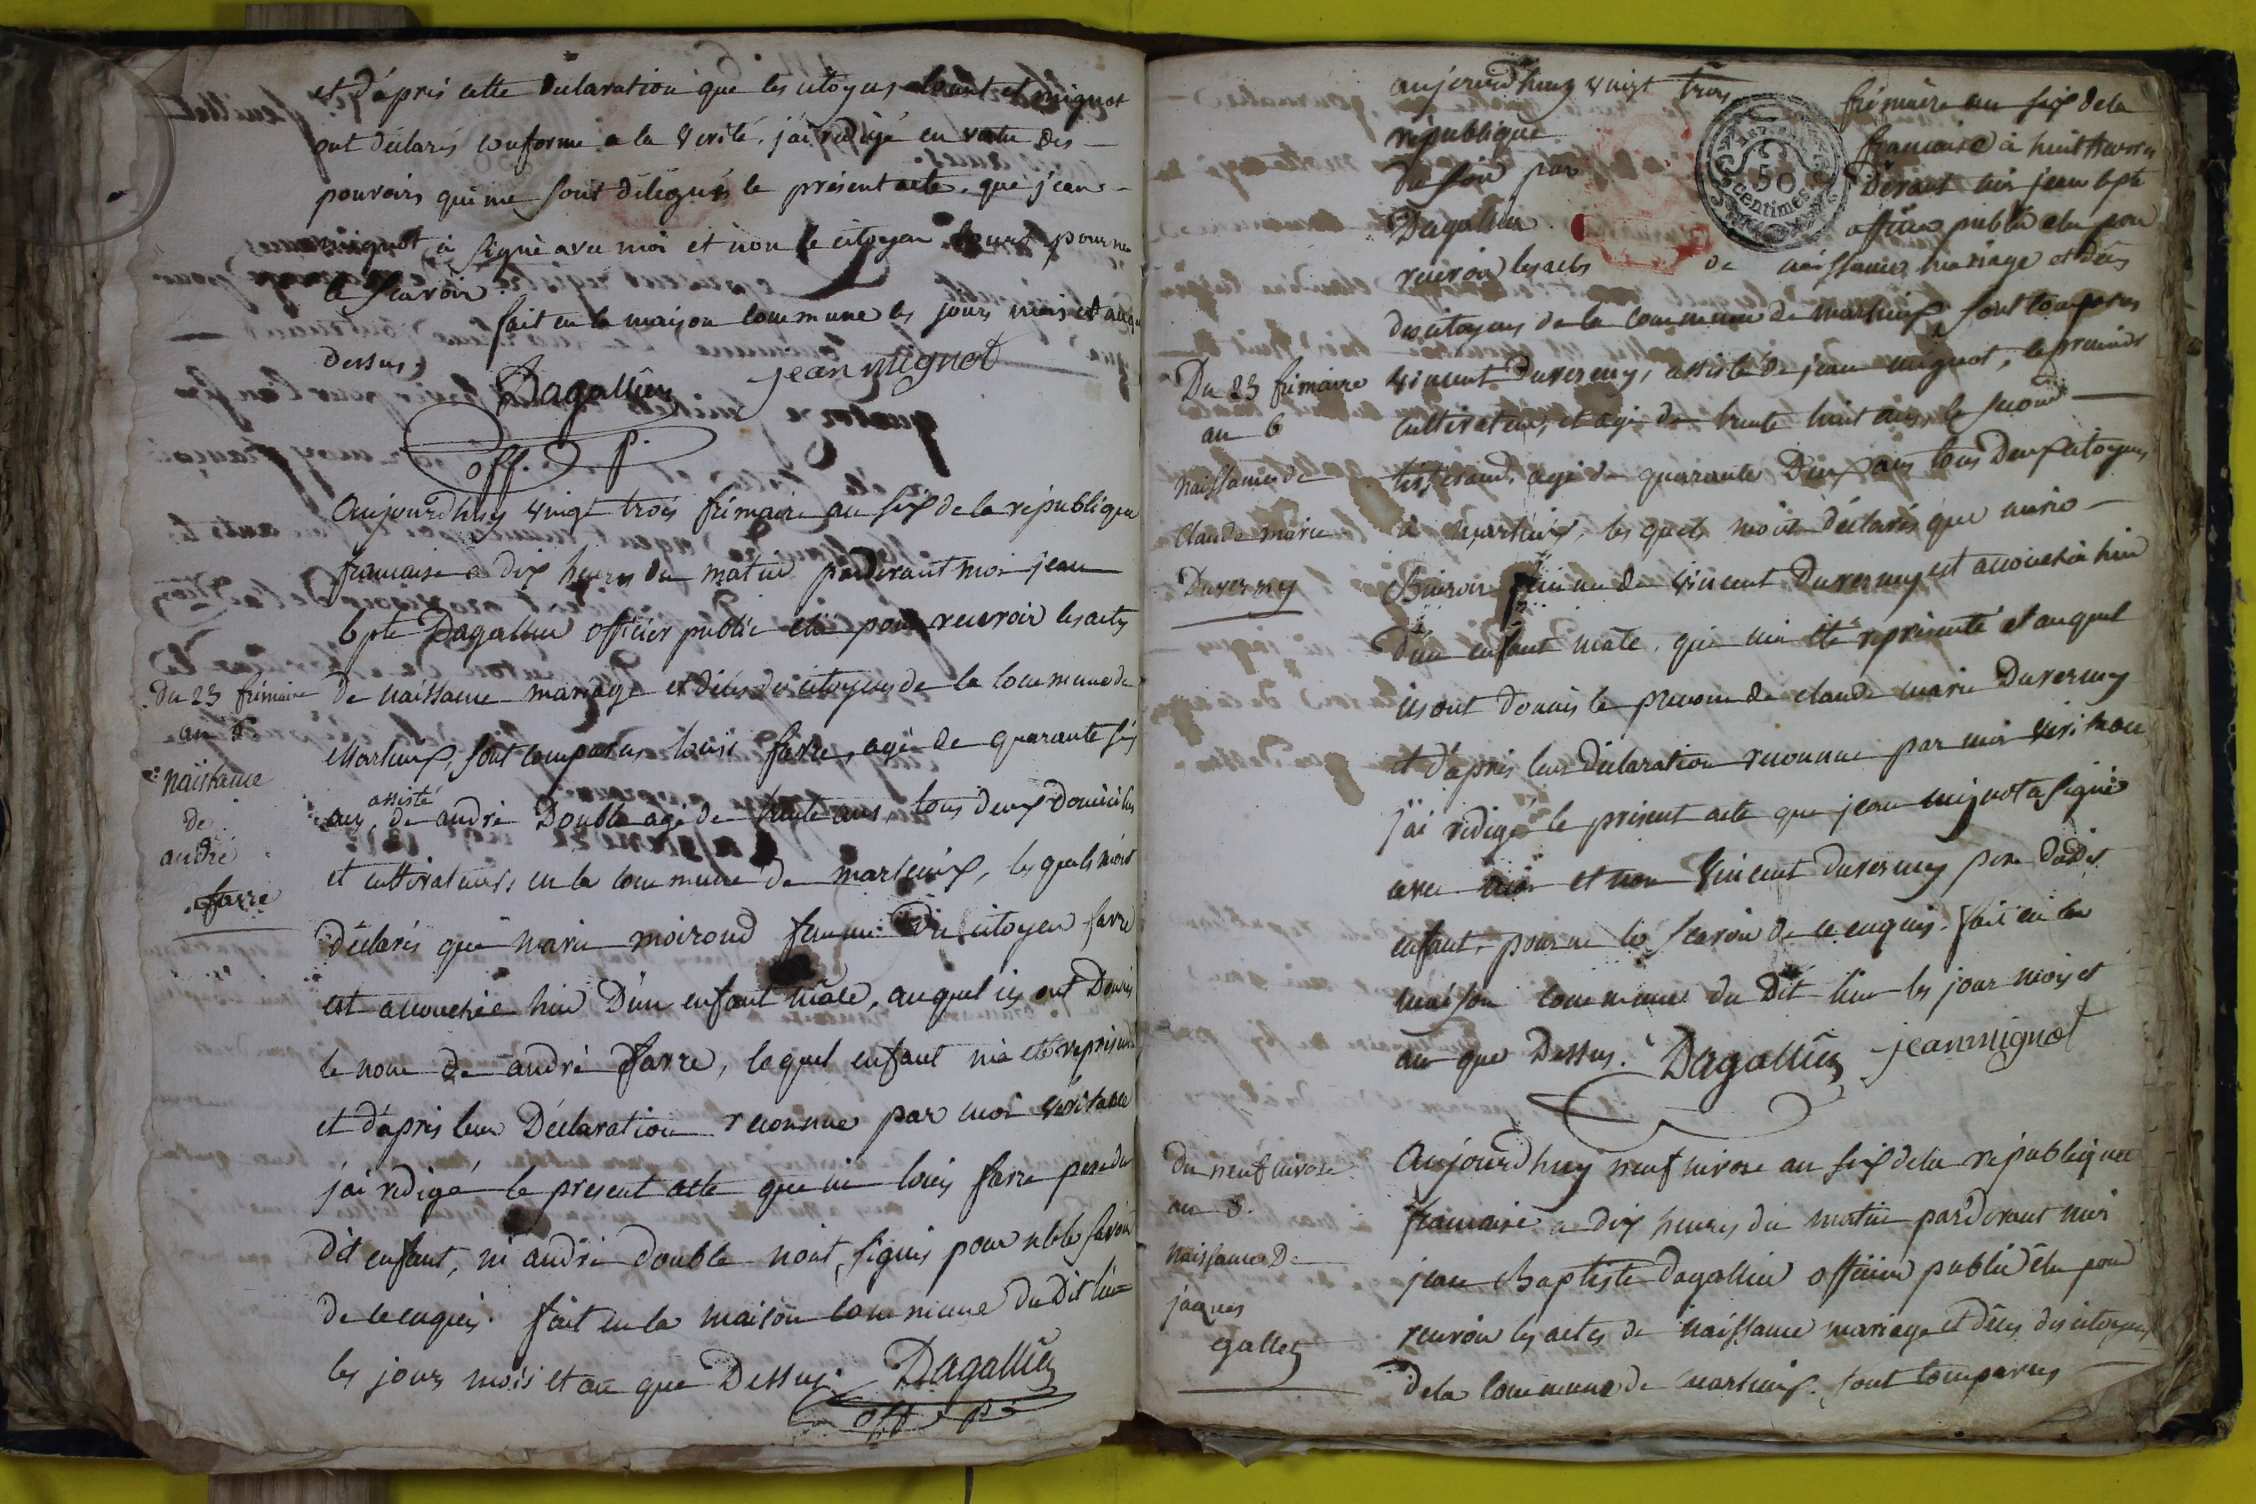 et d'apres cette declaration que les citoyens et mignot
ont déclarés conforme a la verité, j'ai redigé en vertu des
pouvoirs qui me sont délégués le présent acte, que jean
mignot à signé avec moi et non le citoyen pour ne
le scavoir.
fait en la maison commune les jours mois et an que
dessus,
Dagallier jean mignot
off. p.
Du 23 frimaire
an 6
naissance
de
andré
farre
Aujourdhuy vingt trois frimaire an six de la république
francaise a dix heures du matin pardevant moi jean
bpte Dagallier officier public élu pour recevoir les actes
de naissance mariage et décès des citoyens de la commune de
sont comparus louis farre, agé de quarante six
ans, assisté de andré Double agé de trente ans, tous deux domiciliés
et cultivateurs en la commune de , les quels m'ont
déclarés que marie moiroud femme du citoyen farre
est accouchée hier d'un enfant mâle, auquel ils ont donnés
le nom de andré farre, lequel enfant m'a été représenté
et d'après leur déclaration reconnue par moi véritable
j'ai redigé le present acte que ni louis farre pere du
dit enfant, ni andré double n'ont signés pour ne le savoir
de ce enquis. fait en la maison commune du dit lieu
les jours mois et an que dessus. Dagallier
off. p.
aujourdhuy vingt trois frimaire an six de la
république francaise à huit heures
du soir par devant moi jean bpte
Dagallier officier public elu pour
recevoir les actes de naissance mariage et décès
50
centimes
Du 23 frimaire
an 6
naissance de
Claude marie
Duverney
des citoyens de la commune de sont comparus
vincent duverney, assisté de jean mignot, le premier
cultivateur, et agé de trente huit ans, le second
tisserand, agé de quarante deux ans tous deux citoyens
à , les quels m'ont déclarés que marie
femme de vincent Duverney est accouchée hier
d'un enfant mâle, qui m'a été représenté et auquel
ils ont donnés le prenom de claude marie Duverney
et d'après leur déclaration reconnue par moi véritable
j'ai redigé le présent acte que jean mignot a signé
avec moi et non vincent duverney pere du dit
enfant, pour ne le scavoir de ce enquis. fait en la
maison commune du dit lieu les jour mois et
an que dessus. Dagallier jean mignot
Du neuf nivose
an 6.
naissance De
jacques
gallet
Aujourdhuy neuf nivose an six de la republique
francaise a dix heures du matin pardevant moi
jean Baptiste Dagallier officier public élu pour
recevoir les actes de naissance mariage et décès des citoyens
de la commune de . sont comparus